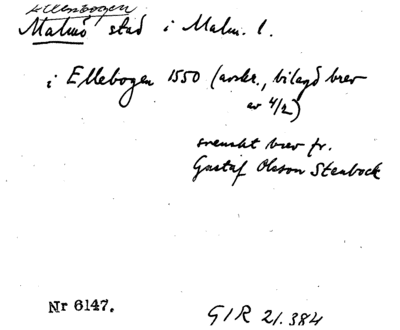 Ellenbogen
Malmö stad i Malm. l.
i Ellebogen 1550 (avskr., bilagd brev
av 4/2)
svenskt brev fr.
Gustaf Olsson Stenbock
Nr 6147.
GIR 21.384